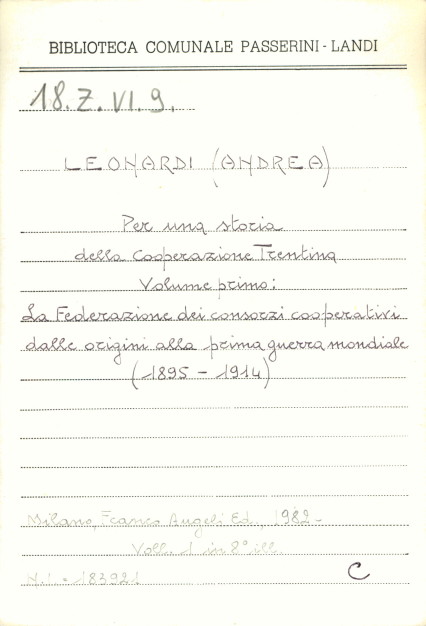 BIBLIOTECA COMUNALE PASSERINI - LANDI
18. Z. VI. 9.
LEONARDI (ANDREA)
Per una storia
della Cooperazione Trentina
Volume primo:
La Federazione dei consorzi cooperativi
dalle origini alla prima guerra mondiale
(1895 - 1914)
Milano, Franco Angeli Ed., 1982 -
Voll. 1 in 8° ill.
N.I. = 183921
C